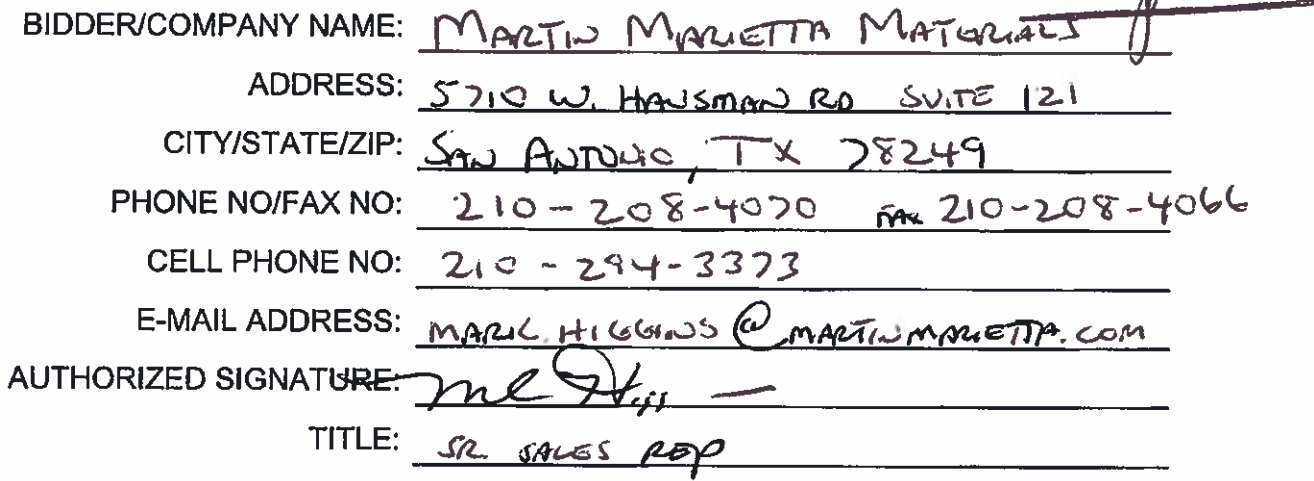 BIDDER/COMPANY NAME: MARTIN MARIETTA MATERIALS
ADDRESS: 5710 W. HAUSMAN RD SUITE 121
CITY/STATE/ZIP: SAN ANTONIO, TX 78249
PHONE NO/FAX NO: 210-208-4070 FAX 210-208-4066
CELL PHONE NO: 210-294-3373
E-MAIL ADDRESS: MARK.HIGGINS@MARTINMARIETTA.COM
AUTHORIZED SIGNATURE:
TITLE: SR. SALES REP